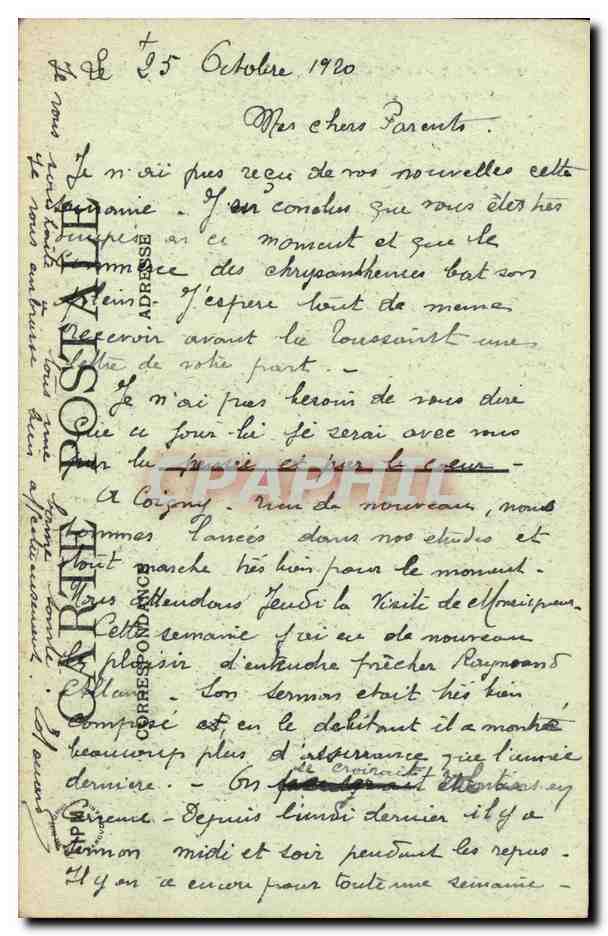 Le 25 Octobre 1920
Mes chers Parents.
Je n'ai pas reçu de vos nouvelles cette
semaine. J'en conclus que vous êtes très
occupés en ce moment et que le
commerce des chrysanthèmes bat son
plein. J'espère tout de même
recevoir avant la Toussaint une
lettre de votre part. -
Je n'ai pas besoin de vous dire
que ce jour là je serai avec vous
par la pensée et par le coeur -
A Coigny. rien de nouveau, nous
sommes lancés dans nos études et
tout marche très bien pour le moment.
Nous attendons Jeudi la Visite de Monseigneur.
Cette semaine j'ai eu de nouveau
le plaisir d'entendre prêcher Raymond
Allard - Son sermon était très bien
composé et, en le débitant il a montré
beaucoup plus d'assurance que l'année
dernière. - On se croirait
Carême - Depuis lundi dernier il y a
sermon midi et soir pendant les repas.
Il y en a encore pour toute une semaine -
Je vous souhaite à tous une bonne santé.
Je vous embrasse bien affectueusement.
CARTE POSTALE
CORRESPONDANCE
ADRESSE
CPAPHIL